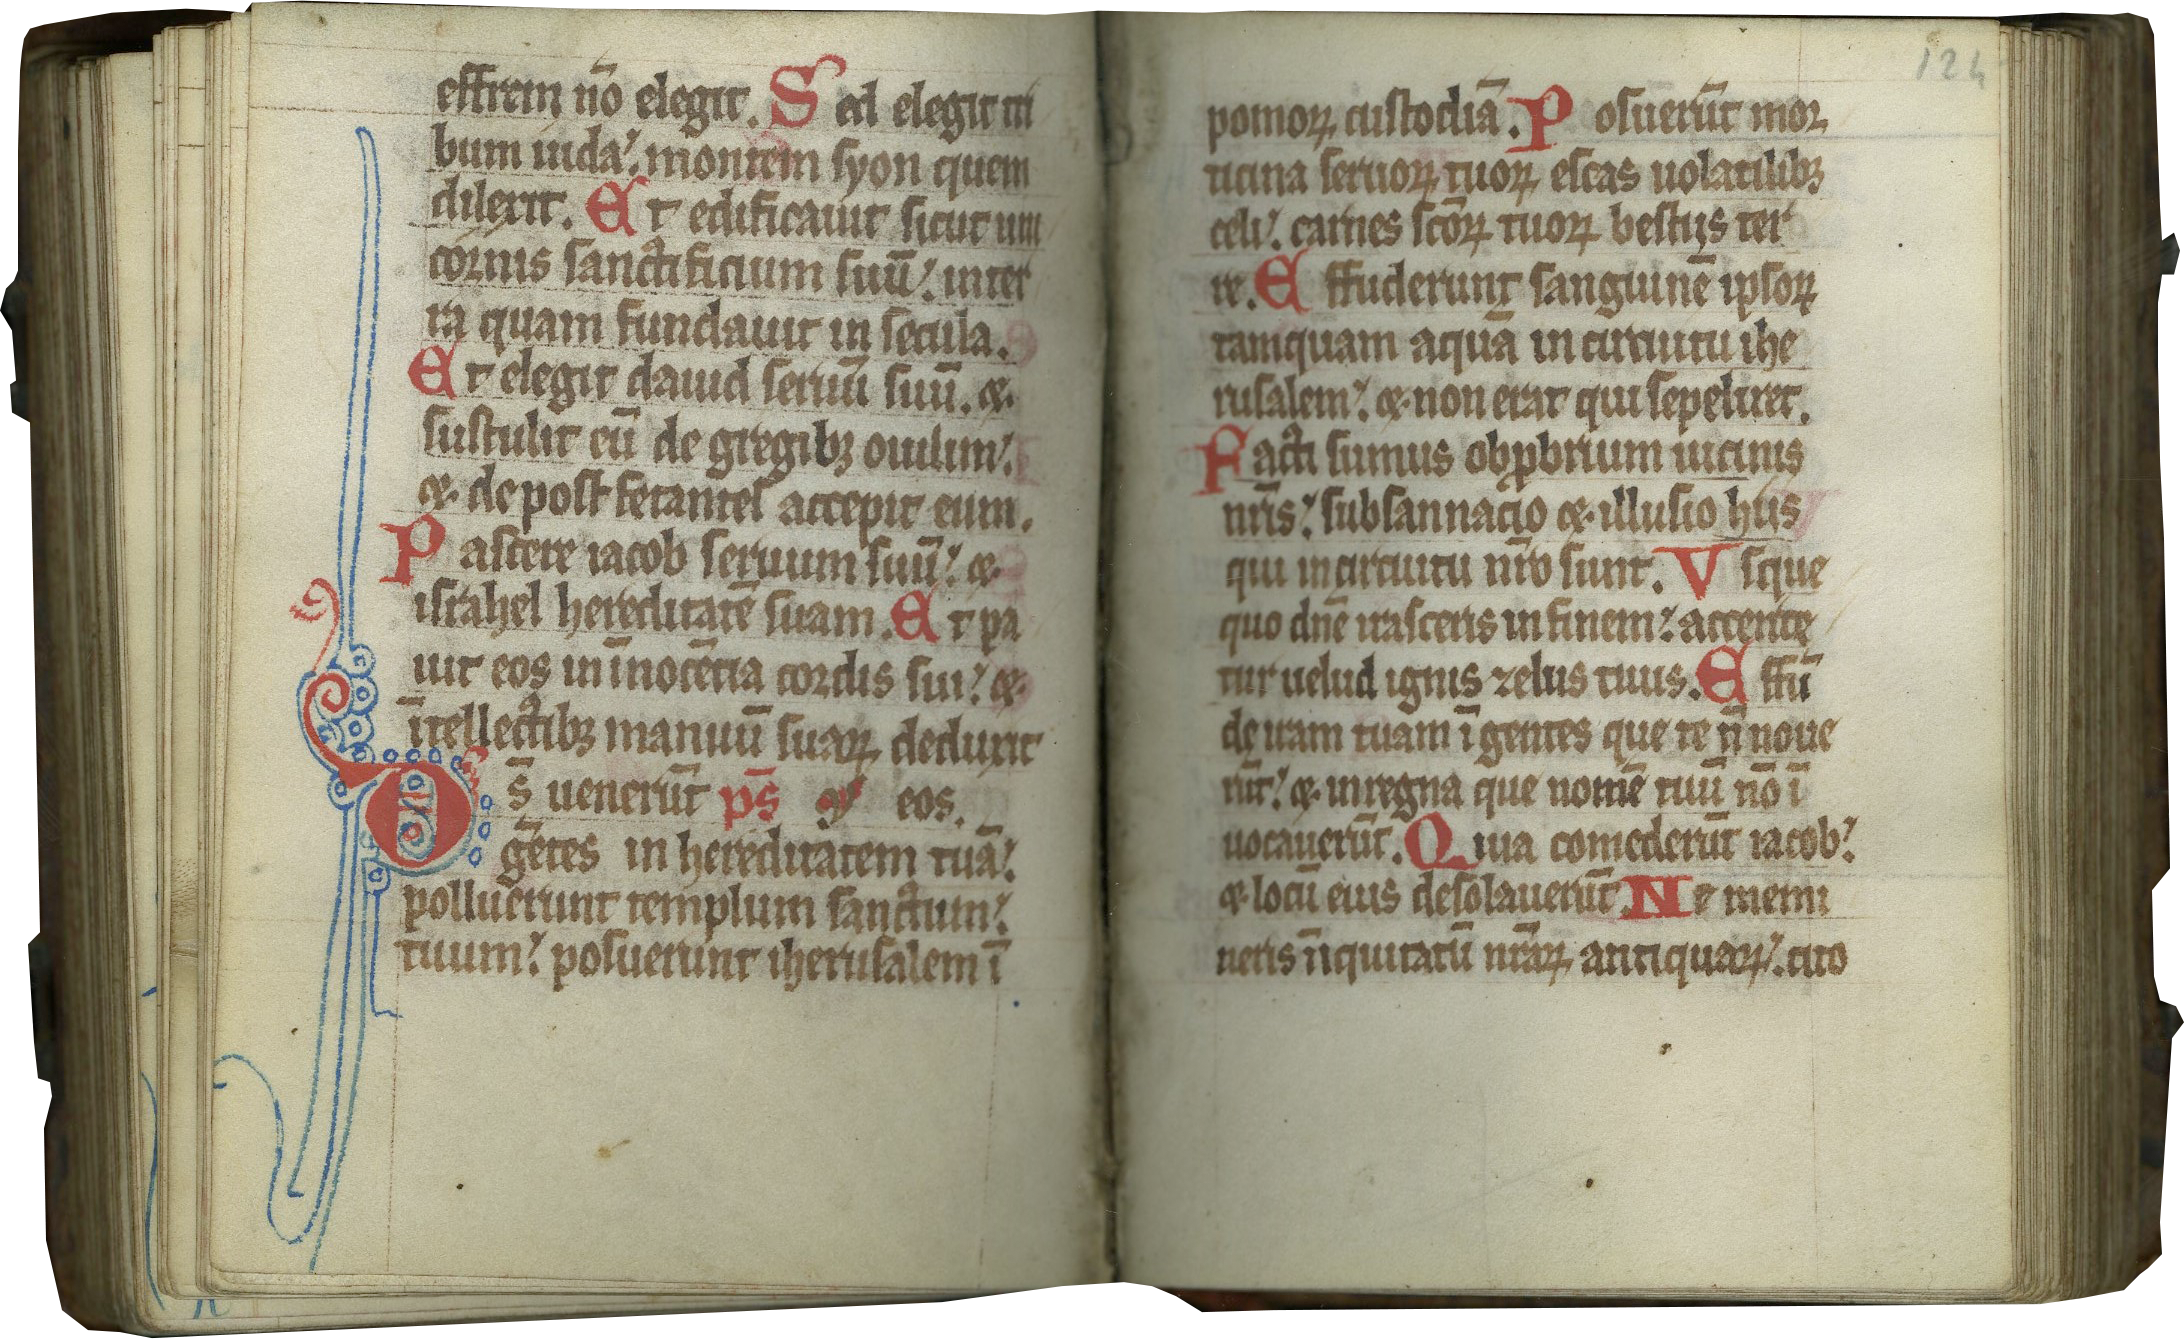 effrem nō elegit. Sed elegit tri
bum iuda: montem syon quem
dilexit. Et edificauit sicut uni
cornis sanctificium suū: in ter
ra quam fundauit in secula.
Et elegit dauid seruū suū. et
sustulit eū de gregibꝫ ouium:
et de post fetantes accepit eum.
Pascere iacob seruum suū: et
israhel hereditatē suam. Et pa
uit eos in īnocētia cordis sui: et
ītellectibꝫ manuū suaꝝ deduxit
Ds̄ uenerūt ps̄ eos.
gētes in hereditatem tuā:
polluerunt templum sanctum
tuum: posuerunt iherusalem ī
124
pomoꝝ custodiā. Posuerūt mor
ticina seruoꝝ tuoꝝ escas uolatilibꝫ
celi: carnes scōꝝ tuoꝝ bestijs ter
re. Effuderunt sanguinē ipsoꝝ
tamquam aquā in circuitu ihe
rusalem: et non erat qui sepeliret.
Facti sumus obꝓbrium uicinis
nr̄is: subsannacio et illusio hiis
qui in circuitu nr̄o sunt. Vsque
quo dn̄e irasceris in finem: accende
tur uelud ignis zelus tuus. Effū
de iram tuam ī gentes que te n̄ noue
rūt: et in regna que nomē tuū nō ī
uocauerūt. Quia comederūt iacob:
et locū eius desolauerūt. Ne memi
neris īiquitatū nr̄aꝝ antiquaꝝ: cito